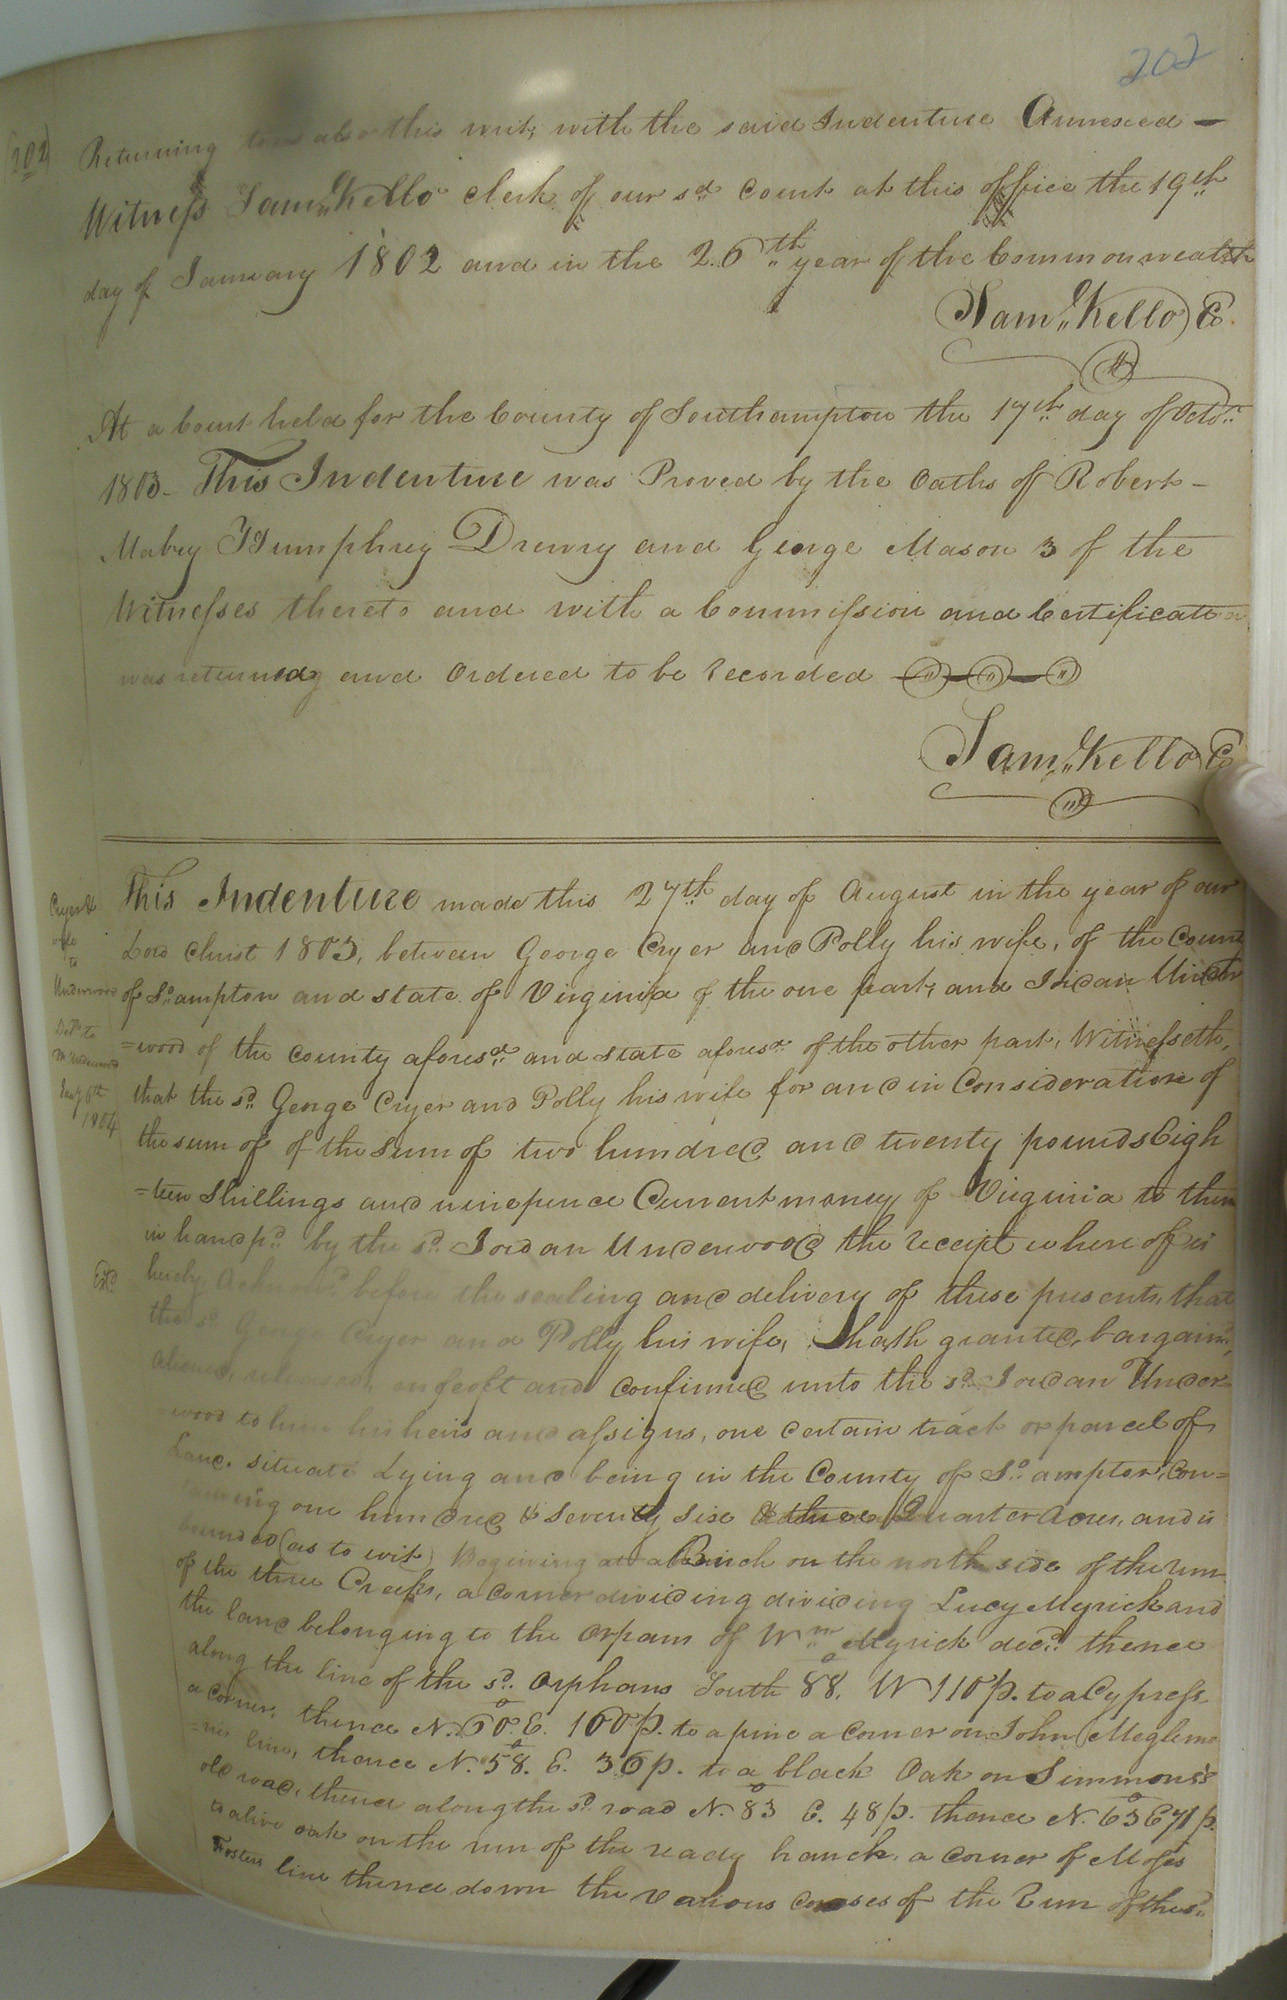 202
(202)
Returning to us also this writ, with the said Indenture Annexed —
Witness Sam,,, Kello Clerk of our sd. Court at this office the 19th
day of January 1802 and in the 26th year of the Commonwealth
Sam,,, Kello C
At a Court held for the County of Southampton the 17th day of Octo.
1803. This Indenture was Proved by the Oaths of Robert -
Mabry Humphrey Drewry and George Mason 3 of the
Witnesses thereto and with a Commission and Certificate
was returned and Ordered to be Recorded
Sam,,, Kello C
This Indenture made this 27th day of August in the year of our
Lord Christ 1803, between George Cryer and Polly his wife, of the Coun
of So.ampton and state of Virginia of the one part, and Jordan Under
=wood of the County aforesd. and state aforesd. of the other part, Witnesseth,
that the sd. George Cryer and Polly his wife for and in Consideration of
the sum of of the sum of two hundred and twenty pounds Eigh
=teen Shillings and ninepence Current money of Virginia to them
in hand pd. by the sd. Jordan Underwood the receipt whereof is
hereby before the sealing and delivery of these presents, that
the sd. George Cryer and Polly his wife, hath granted, bargain,
aliened, released, enfeoft and confirmed unto the sd. Jordan Under-
=wood to him his heirs and assigns, one certain tract or parcel of
Land. situate Lying and being in the County of So.ampton, Con=
taining one hundred & seventy six & three Quarter Acres, and is
bounded (as to wit) Begining at a Birch on the north side of the run
of the three Creeks, a corner dividing dividing Lucy Myrick and
the land belonging to the Orpans of Wm. Myrick decd. thence
along the line of the sd. Orphans South 88. W 110 p. to a Cypress
a corner, thence N. 60. E. 160 p. to a pine a corner on John Meglemo
=ries line, thence N. 58. E. 36 p. to a black Oak on Simmons's
old road, thence along the sd. road N. 83 E. 48 p. thence N. 63 E 71 p.
to a live oak on the run of the ready branch, a corner of Moses
Fosters line thence down the various courses of the Run of the sd.
Cryer &
wife
to
Underwood
Deld. to
Mr Underwood
Jany 6th
1804
Exd.